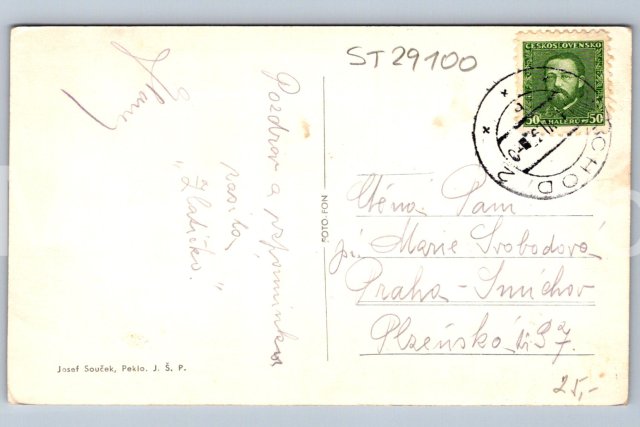 ST29100
ČESKOSLOVENSKO
50 HALÉŘŮ 50
CHOD 2
Pozdrav a vzpomínku
posílá
"Zlatíčko."
FOTO-FON
Ctěná Paní
pí Marie Svobodová
Praha - Smíchov
Plzeňská
Josef Souček, Peklo. J. Š. P.
25,-